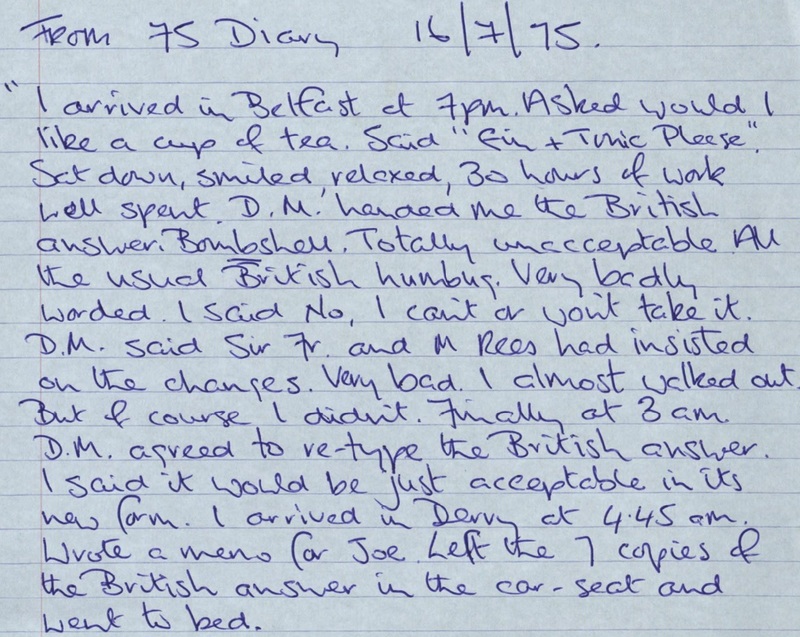 From 75 Diary 16/7/75.
"I arrived in Belfast at 7pm. Asked would I
like a cup of tea. Said "Gin + Tonic Please".
Sat down, smiled, relaxed, 30 hours of work
well spent. D.M. handed me the British
answer. Bombshell. Totally unacceptable. All
the usual British humbug. Very badly
worded. I said No, I can't or won't take it.
D.M. said Sir Fr. and M Rees had insisted
on the changes. Very bad. I almost walked out.
But of course I didn't. Finally at 3 am.
D.M. agreed to re-type the British answer.
I said it would be just acceptable in its
new form. I arrived in Derry at 4.45 am.
Wrote a memo for Joe. Left the 7 copies of
the British answer in the car-seat and
went to bed.